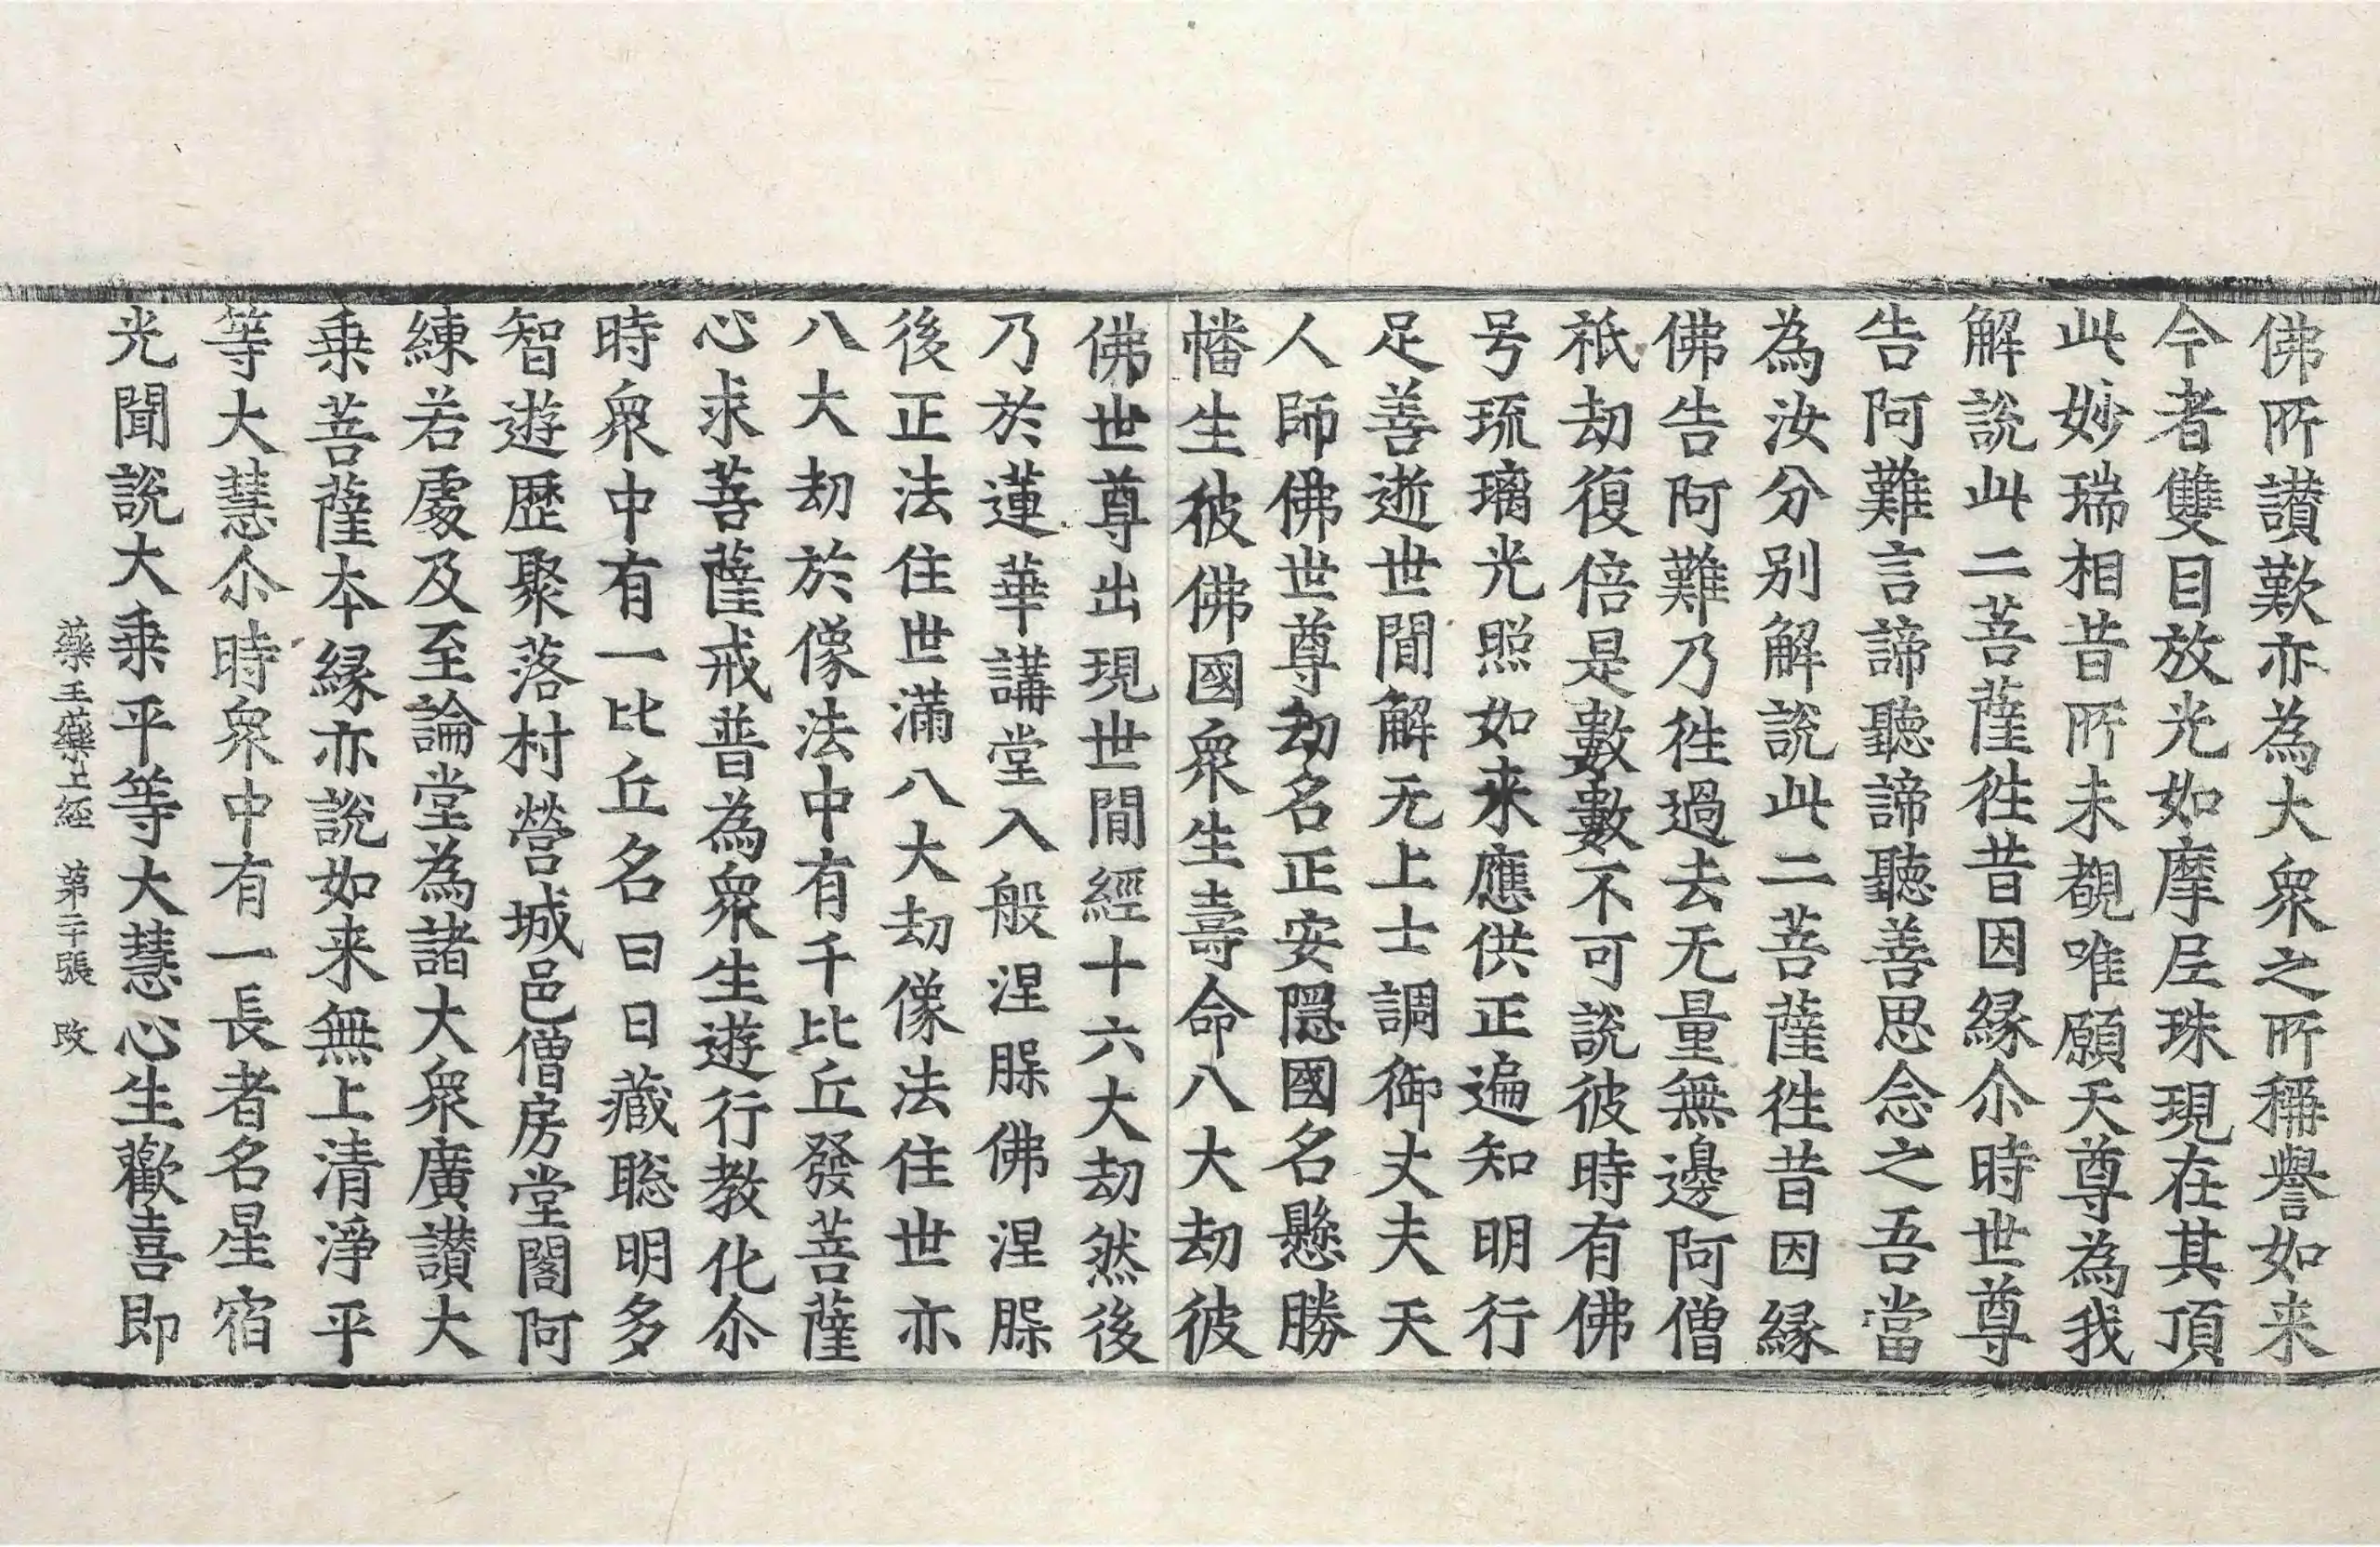 佛所讃歎亦為大衆之所稱譽如来
今者雙目放光如摩尼珠現在其頂
此妙瑞相昔所未覩唯願天尊為我
解說此二菩薩徃昔因縁尒時世尊
告阿難言諦聽諦聽善思念之吾當
為汝分别解說此二菩薩徃昔因縁
佛告阿難乃徃過去无量無邊阿僧
祇劫復倍是數數不可說彼時有佛
号琉璃光照如来應供正遍知明行
足善逝世間解无上士調御丈夫天
人師佛世尊劫名正安隱國名懸勝
幡生彼佛國衆生壽命八大劫彼
佛世尊出現世間經十六大劫然後
乃於蓮華講堂入般涅槃佛涅槃
後正法住世滿八大劫像法住世亦
八大劫於像法中有千比丘發菩薩
心求菩薩戒普為衆生遊行教化尒
時衆中有一比丘名曰日藏聡明多
智遊歷聚落村營城邑僧房堂閣阿
練若處及至論堂為諸大衆廣讃大
乗菩薩本縁亦說如来無上清淨平
等大慧尒時衆中有一長者名星宿
光聞說大乗平等大慧心生歡喜即
藥王藥上經 第二十張 改